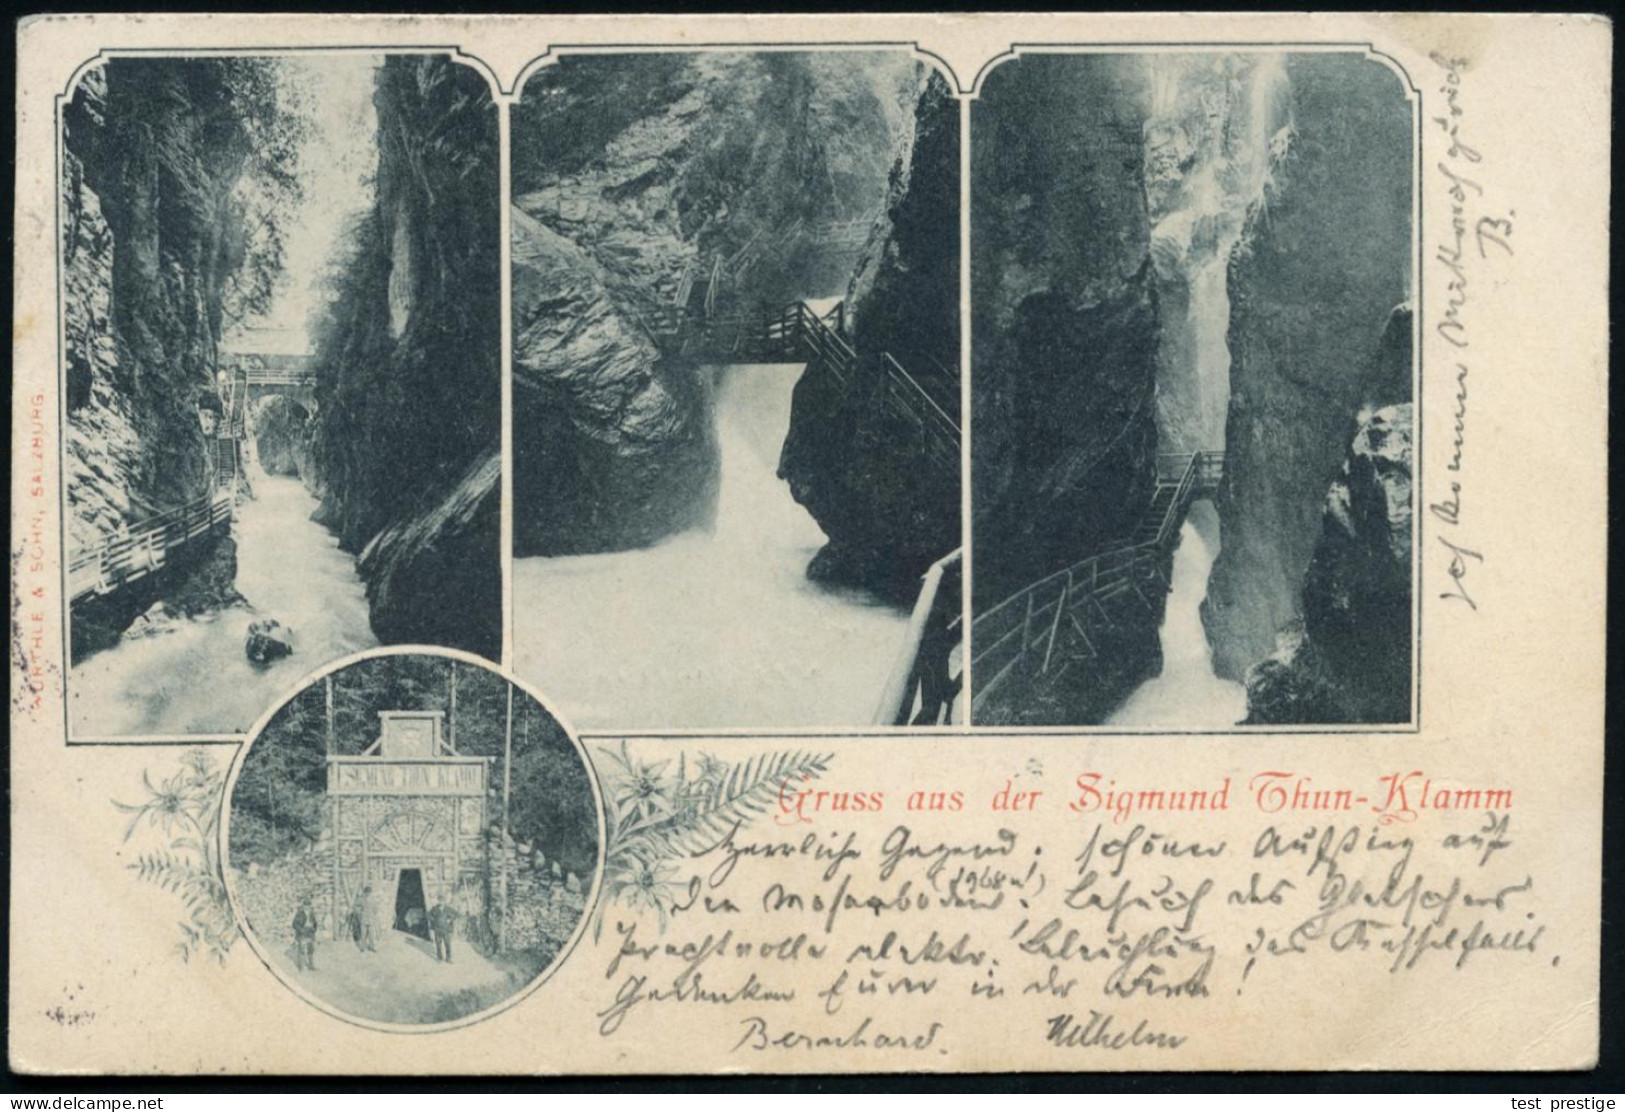 WÜRTHLE & SOHN, SALZBURG.
SIGMUND THUN KLAMM
Gruss aus der Sigmund Thun-Klamm
Herrliche Gegend. Schöner Aufstieg auf
den Moserboden (1968 m). Besuch des Gletschers.
Prachtvolle elektr. Beleuchtung des Kesselfalls.
Gedenken Eurer in der Ferne!
Bernhard. Wilhelm
Ich komme Mittwoch zurück
B.
test_prestige